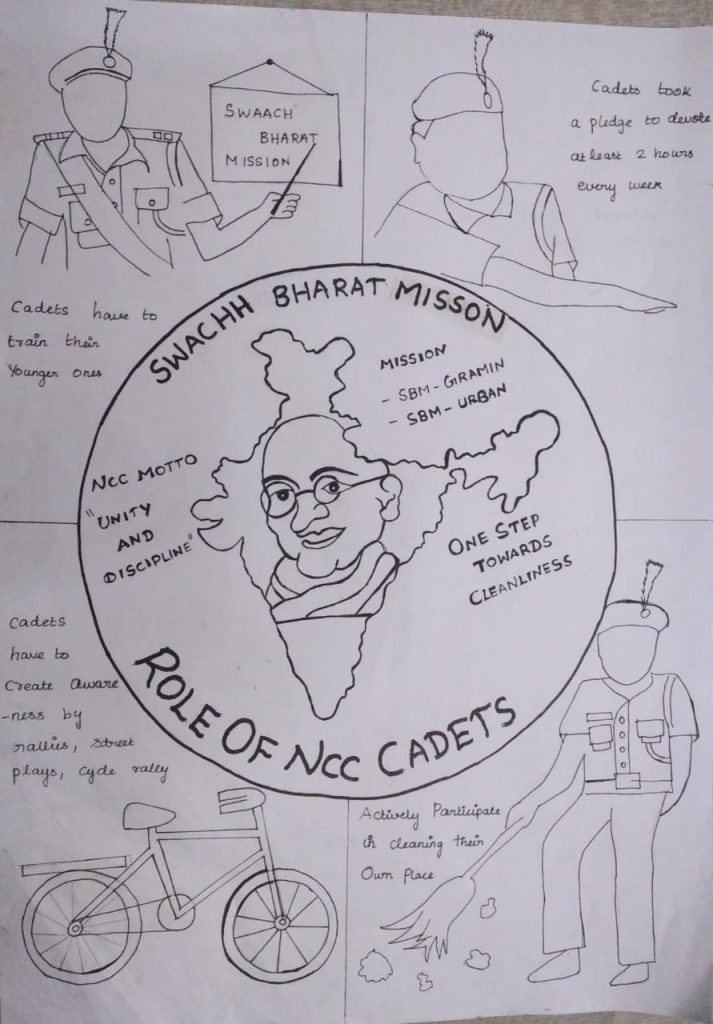 SWAACH
BHARAT
MISSION
Cadets took
a pledge to devote
at least 2 hours
every week
Cadets have to
train their
Younger ones
SWACHH BHARAT MISSON
MISSION
- SBM-GRAMIN
- SBM-URBAN
NCC MOTTO
"UNITY
AND
DISCIPLINE"
ONE STEP
TOWARDS
CLEANLINESS
ROLE OF NCC CADETS
Cadets
have to
Create aware
-ness by
rallies, street
plays, cycle rally
Actively Participate
in cleaning their
Own Place